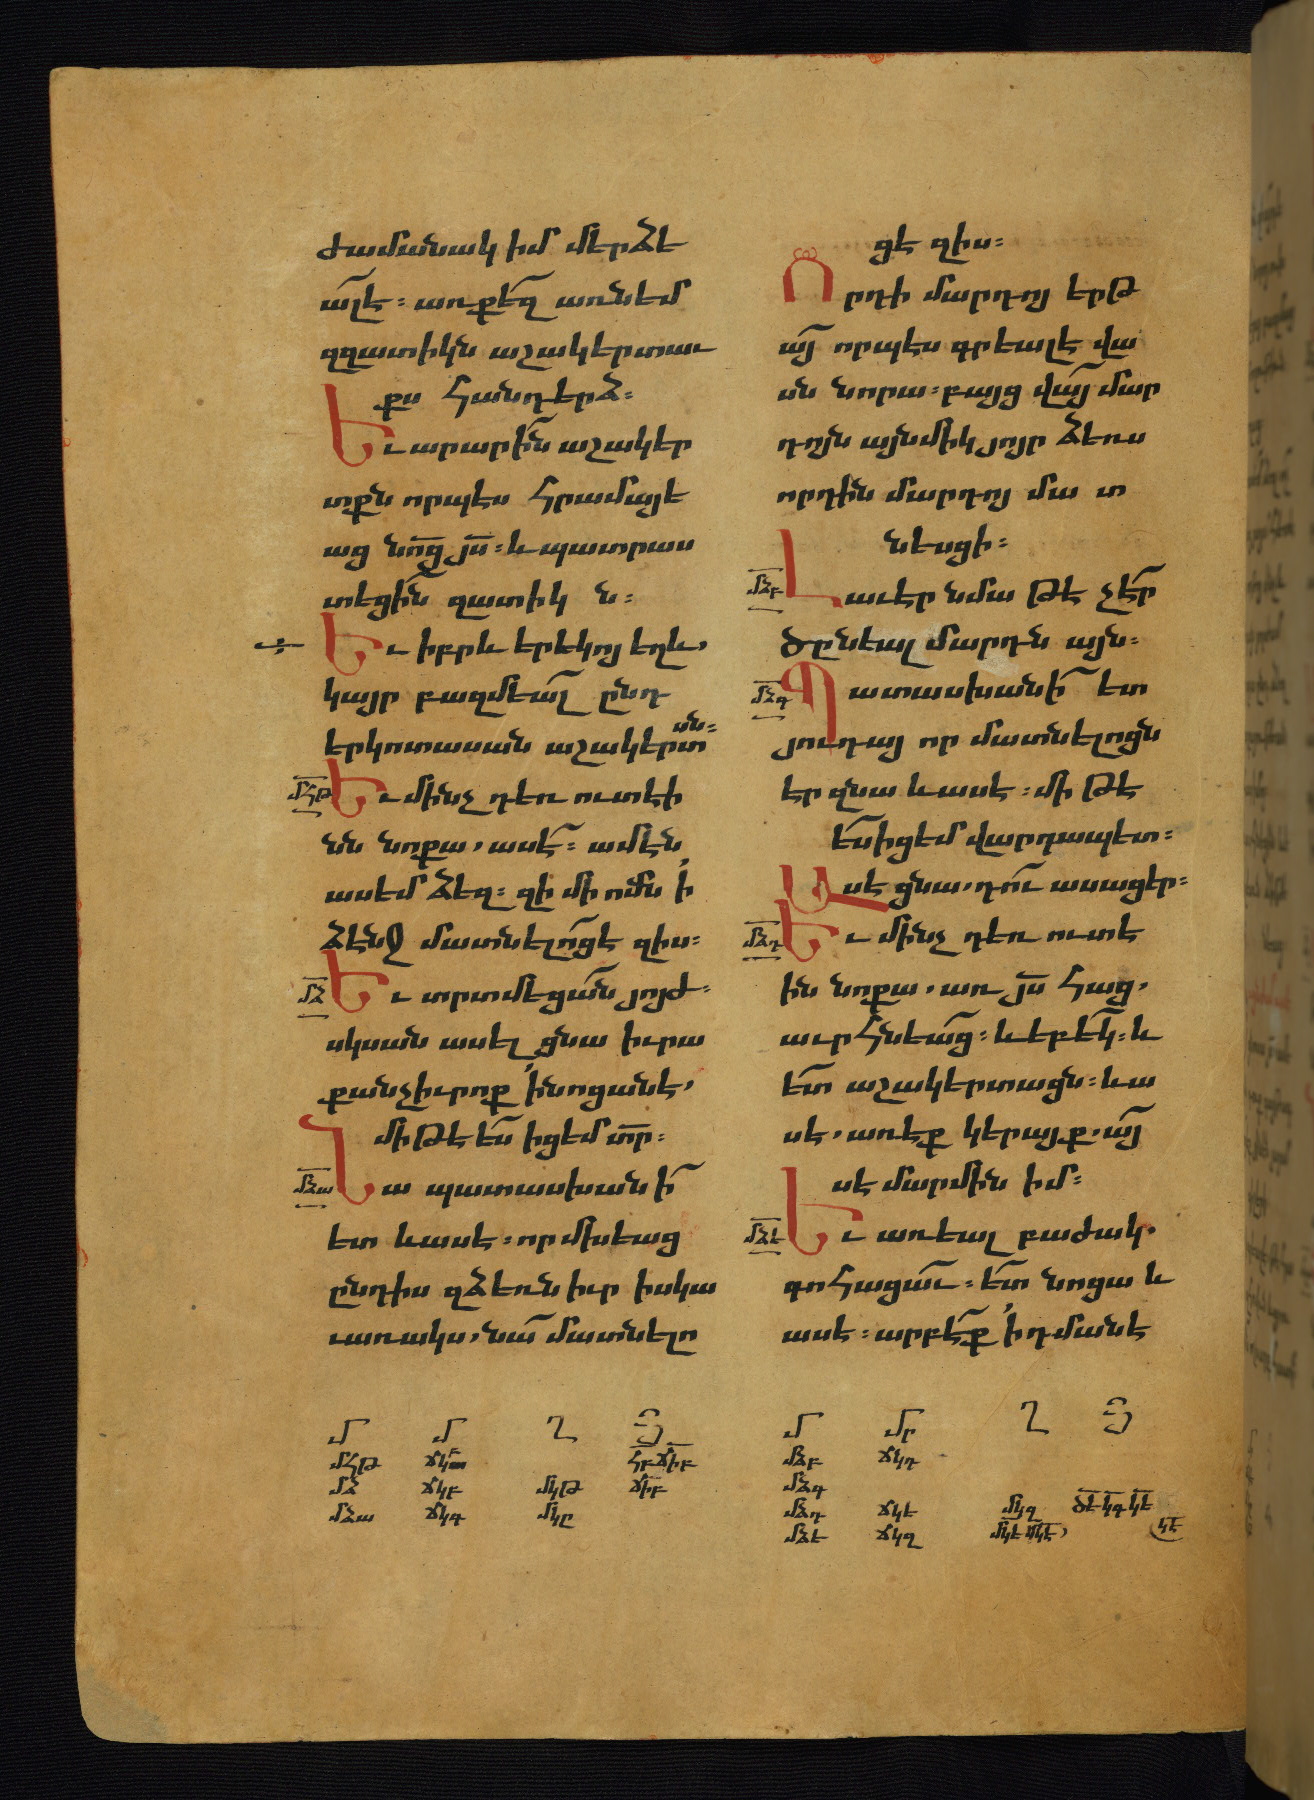 ժամանակ իմ մերձե
ալ է ։ առ քեզ առնեմ
զզատիկն աշակերտաւ
քս հանդերձ ։
Եւ արարին աշակեր
տքն որպես հրամայե
աց նոց յս ։ և պատրաս
տեցին զատիկ ն ։
Եւ իբրև երեկոյ եղև,
կայր բազմեալ ընդ
երկոտասան աշակերտ
սն ։
մհթ Եւ մինչ դեռ ուտէի
նն նոքա, ասէ ։ ամէն
ասեմ ձեզ ։ զի մի ոմն ՚ի
ձէնջ մատնելոց է զիս ։
մձ Եւ տրտմեցան յոյժ ։
սկսան ասել ցնա իւրա
քանչիւրոք ՚ի նոցանէ,
մի թե ես իցեմ տր ։
մձա Նա պատասխանի
ետ և ասէ ։ որ մխեաց
ընդիս զձեռն իւր ի սկա
ւառակս, նա մատնելո
ցէ զիս ։
Որդի մարդոյ երթ
այ որպես գրեալ է վա
սն նորա ։ բայց վայ մար
դոյն այնմիկ յոյր ձեռս
որդին մարդոյ մա տ
նեսցի ։
մձբ Լաւ էր նմա թե չէր
ծընեալ մարդն այն ։
մձգ Պատասխանի ետ
յուդայ որ մատնելոցն
էր զնա և ասէ ։ մի թե
ես իցեմ վարդապետ ։
Ասե ցնա, դու ասացեր ։
մձդ Եւ մինչ դեռ ուտէ
ին նոքա, առ յս հաց,
աւրհնեաց ։ և եբեկ ։ և
ետ աշակերտացն ։ և ա
սէ, առէք կերայք, այ
սէ մարմին իմ ։
մձե Եւ առեալ բաժակ,
գոհացաւ ։ ետ նոցա և
ասէ ։ արբէք ՚ի դմանէ
մ մ ղ յ
մհթ ճկ հբ ճիբ
մձ ճկբ մկթ ճիբ
մձա ճկգ մկը
մ մր ղ յ
մձբ ճկդ
մձգ
մձդ ճկե մկզ ծե կգ կե
մձե ճկզ մկե մկէ կե